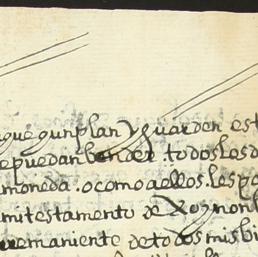 que cunplan y guarden est
epuedan bender. todos los d
moneda. o como a ellos. les pa
mi testamento de
remaniente de todos mis bi